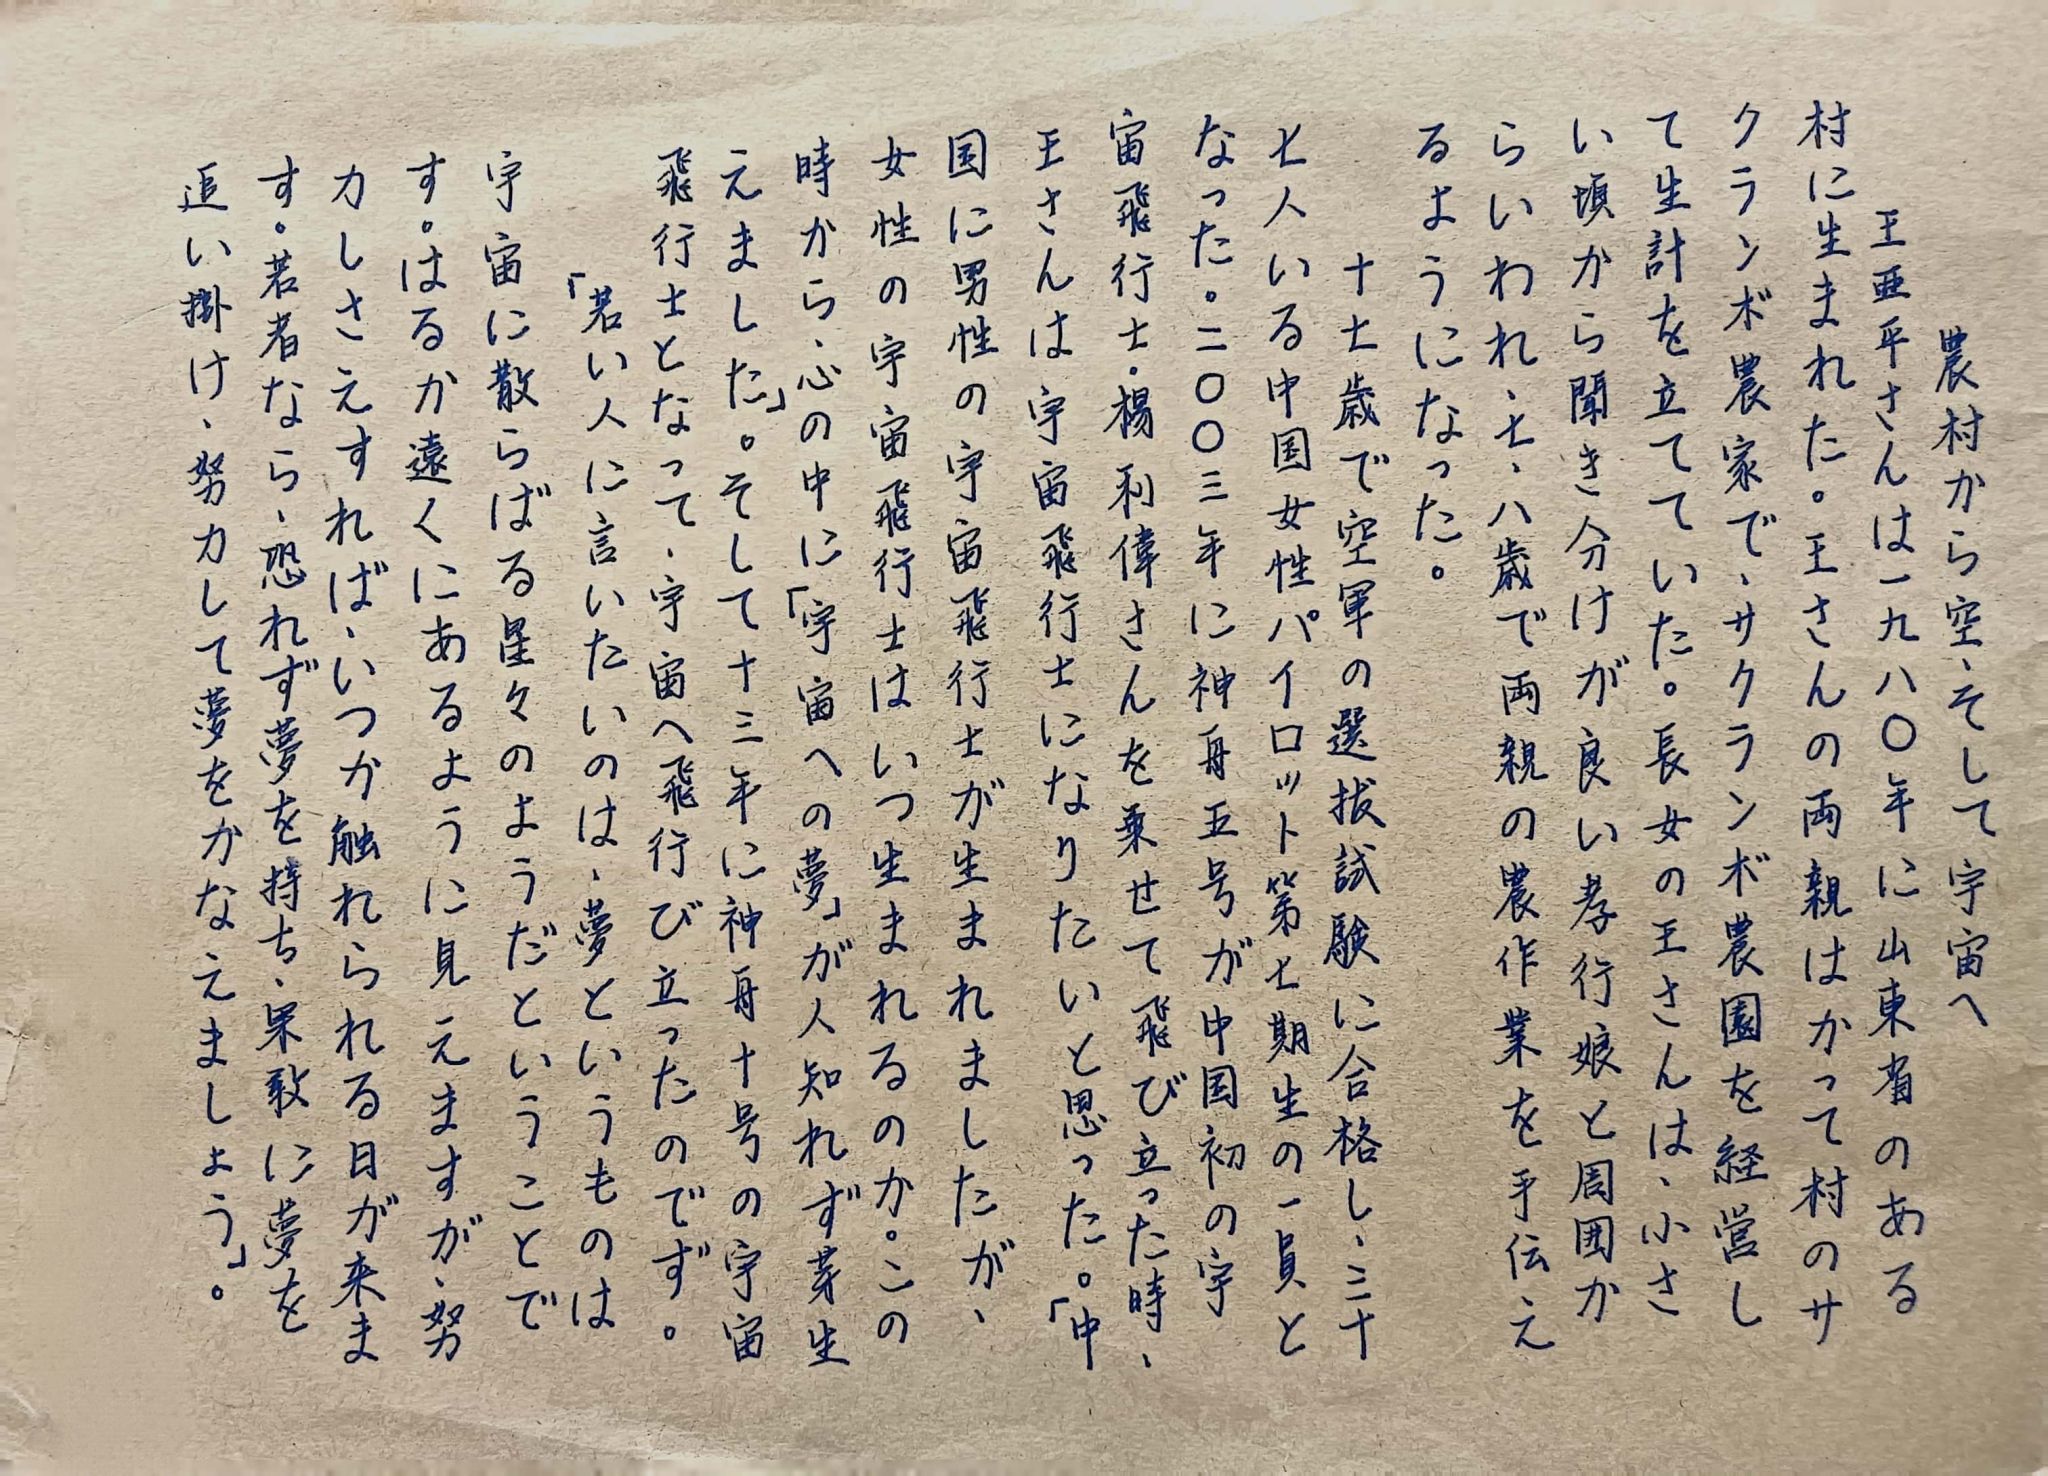 農村から空、そして宇宙へ
王亜平さんは一九八〇年に山東省のある
村に生まれた。王さんの両親はかって村のサ
クランボ農家で、サクランボ農園を経営し
て生計を立てていた。長女の王さんは、小さ
い頃から聞き分けが良い孝行娘と周囲か
らいわれ、七、八歳で両親の農作業を手伝え
るようになった。
十七歳で空軍の選抜試験に合格し、三十
七人いる中国女性パイロット第七期生の一員と
なった。二〇〇三年に神舟五号が中国初の宇
宙飛行士・楊利偉さんを乗せて飛び立った時、
王さんは宇宙飛行士になりたいと思った。「中
国に男性の宇宙飛行士が生まれましたが、
女性の宇宙飛行士はいつ生まれるのか。この
時から、心の中に「宇宙への夢」が人知れず芽生
えました」。そして十三年に神舟十号の宇宙
飛行士となって、宇宙へ飛行び立ったのでず。
「若い人に言いたいのは、夢というものは
宇宙に散らばる星々のようだということで
す。はるか遠くにあるように見えますが、努
力しさえすれば、いつか触れられる日が来ま
す。若者なら、恐れず夢を持ち、果敢に夢を
追い掛け、努力して夢をかなえましょう」。